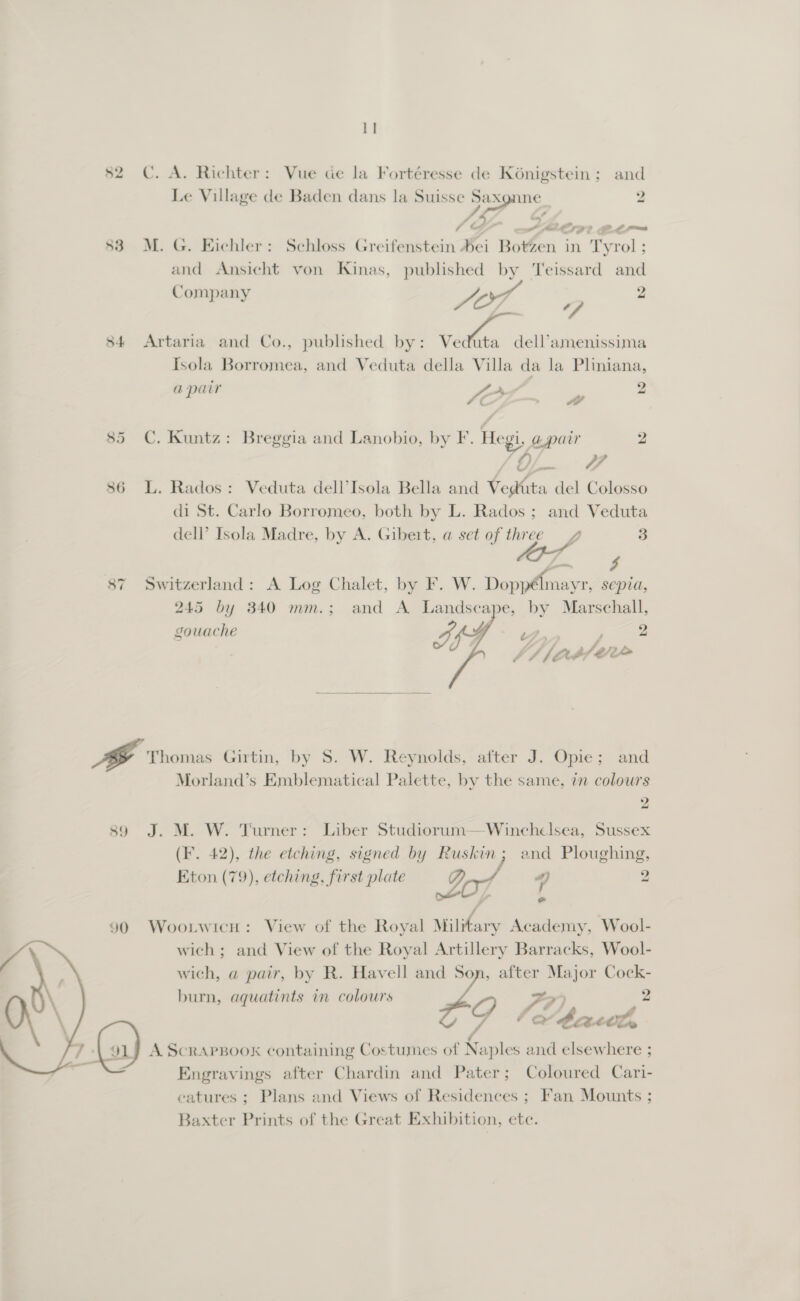 11
82 C. A. Richter: Vue de la Fortéresse de Königstein; and
Le Village de Baden dans la Suisse Saxonne 2
83 M. G. Eichler: Schloss Greifenstein bei Botzen in Tyrol;
and Ansicht von Kinas, published by Teissard and
Company 2
84 Artaria and Co., published by: Veduta dell'amenissima
Isola Borromea, and Veduta della Villa da la Pliniana,
a pair 2
85 C. Kuntz: Breggia and Lanobio, by F. Hegi, a pair 2
86 L. Rados: Veduta dell'Isola Bella and Veduta del Colosso
di St. Carlo Borromeo, both by L. Rados; and Veduta
dell' Isola Madre, by A. Gibert, a set of three 3
87 Switzerland: A Log Chalet, by F. W. Doppélmayr, sepia,
245 by 340 mm.; and A Landscape, by Marschall,
gouache 2
Thomas Girtin, by S. W. Reynolds, after J. Opie; and
Morland's Emblematical Palette, by the same, in colours
2
89 J. M. W. Turner: Liber Studiorum—Winchelsea, Sussex
(F. 42), the etching, signed by Ruskin; and Ploughing,
Eton (79), etching, first plate 2
90 Woolwich: View of the Royal Military Academy, Wool-
wich; and View of the Royal Artillery Barracks, Wool-
wich, a pair, by R. Havell and Son, after Major Cock-
burn, aquatints in colours 2
91 A Scrapbook containing Costumes of Naples and elsewhere;
Engravings after Chardin and Pater; Coloured Cari-
catures; Plans and Views of Residences; Fan Mounts;
Baxter Prints of the Great Exhibition, etc.